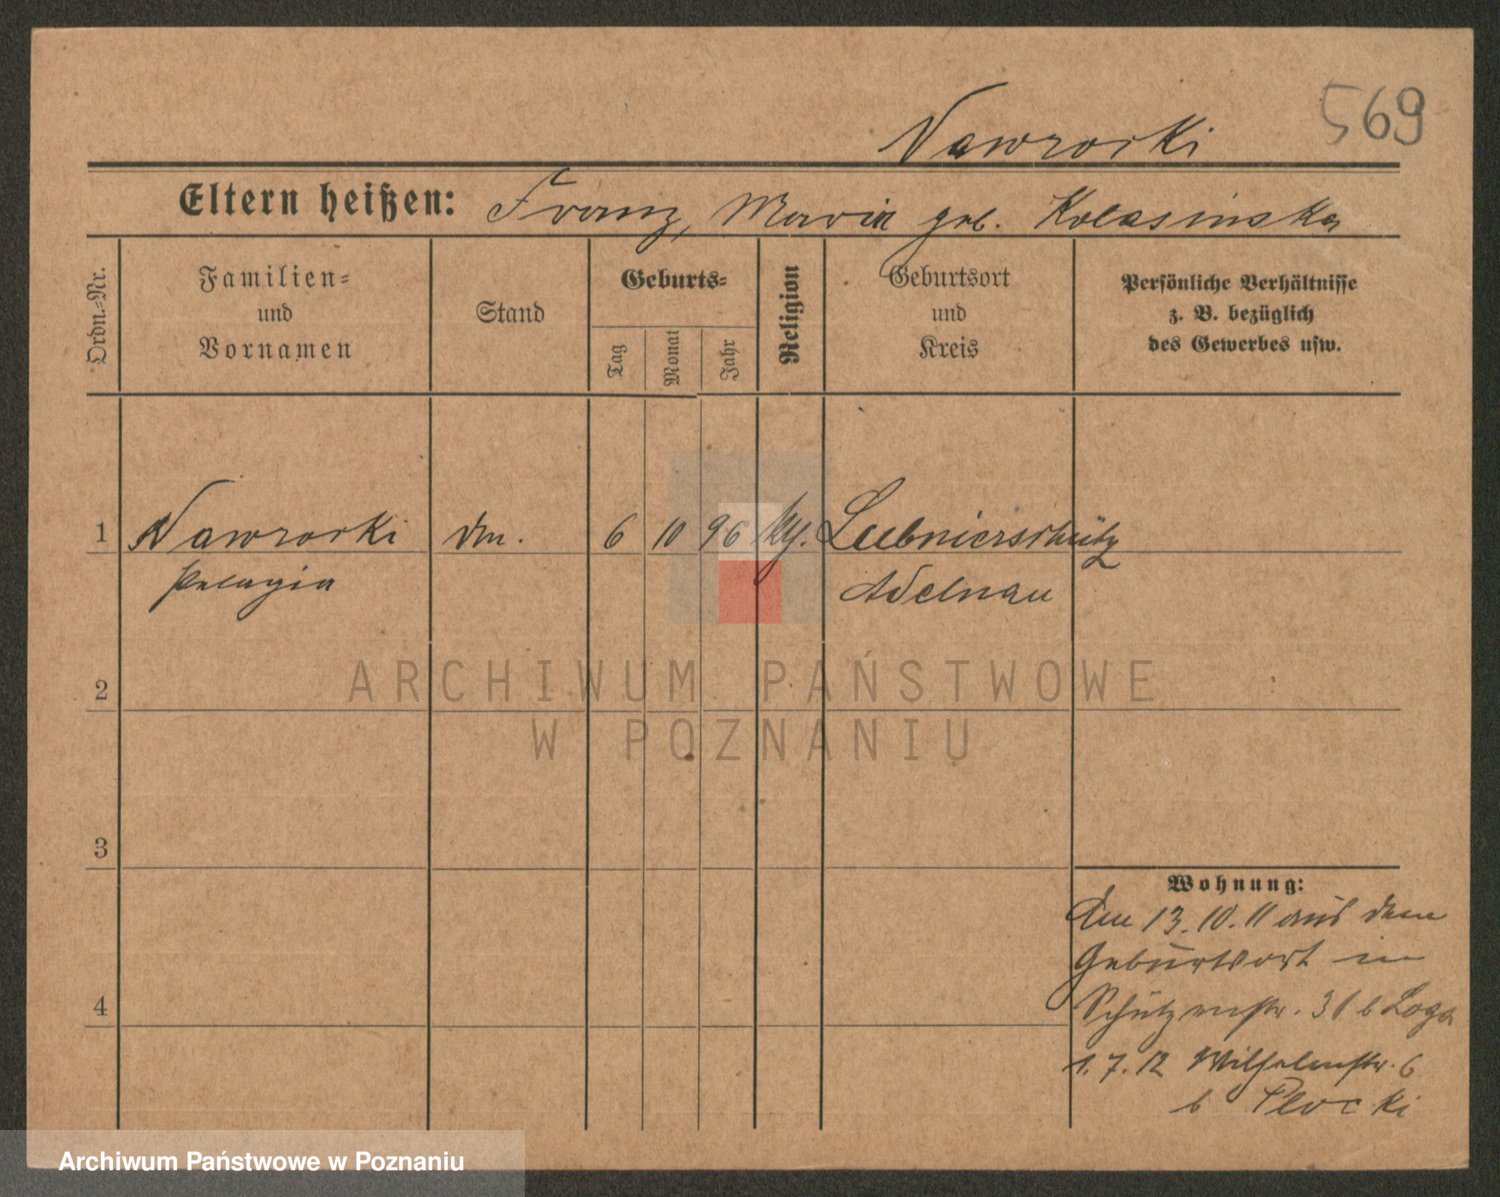 569
Nawrocki
Eltern heißen: Franz, Maria geb. Kolasinska
Ordn.=Nr.
Familien=
und
Vornamen
Stand
Geburts=
Tag
Monat
Jahr
Religion
Geburtsort
und
Kreis
Persönliche Verhältnisse
z. B. bezüglich
des Gewerbes usw.
1 Nawrocki 6 10 96 Lubnierschütz
Pelagia Adelnau
2
ARCHIWUM PAŃSTWOWE
W POZNANIU
3
4
Wohnung:
Am 13. 10. 11 aus dem
Geburtsort in
Schützenstr. 31 b
1. 7. 12 Wilhelmstr. 6
b Plocki
Archiwum Państwowe w Poznaniu